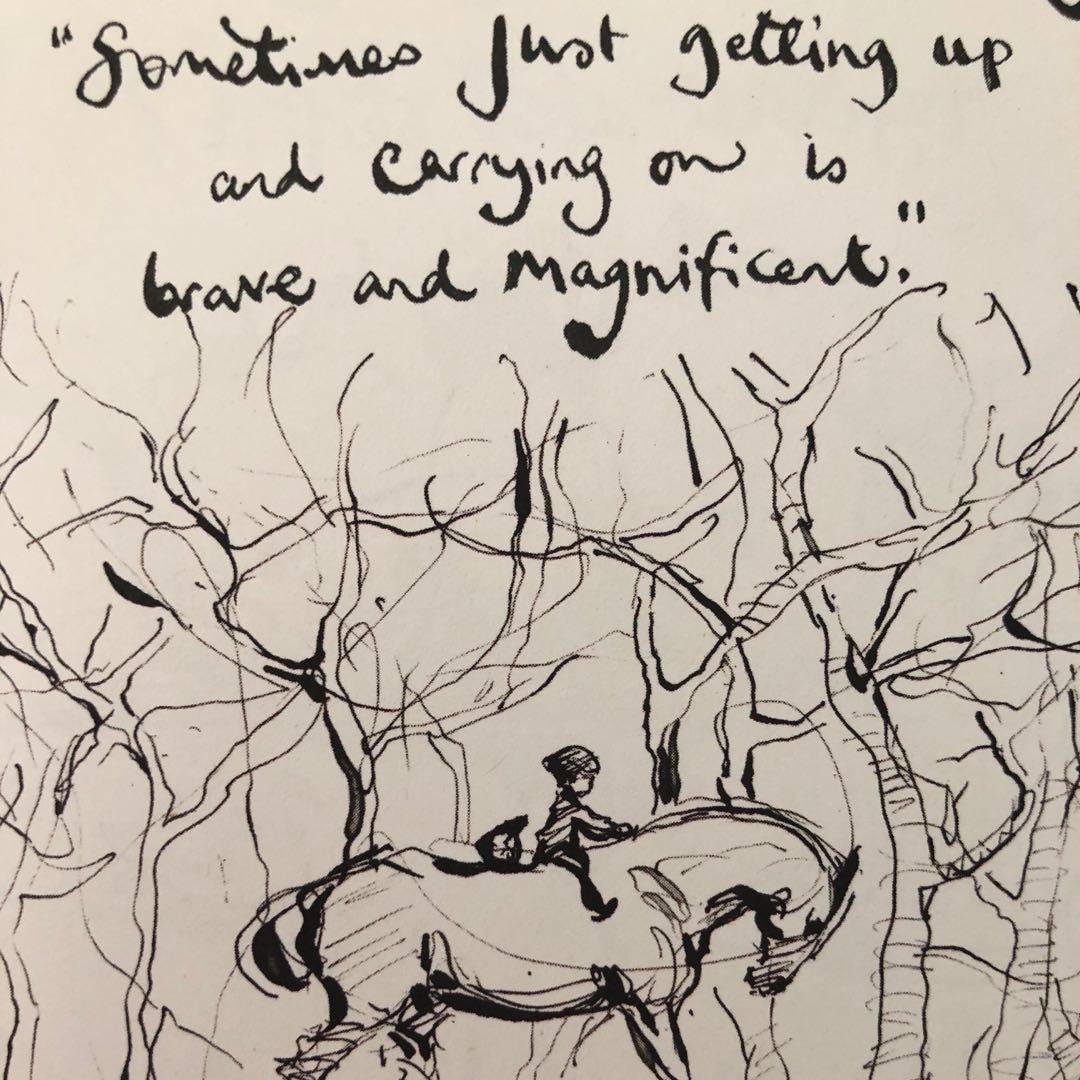 "Sometimes just getting up
and carrying on is
brave and magnificent."